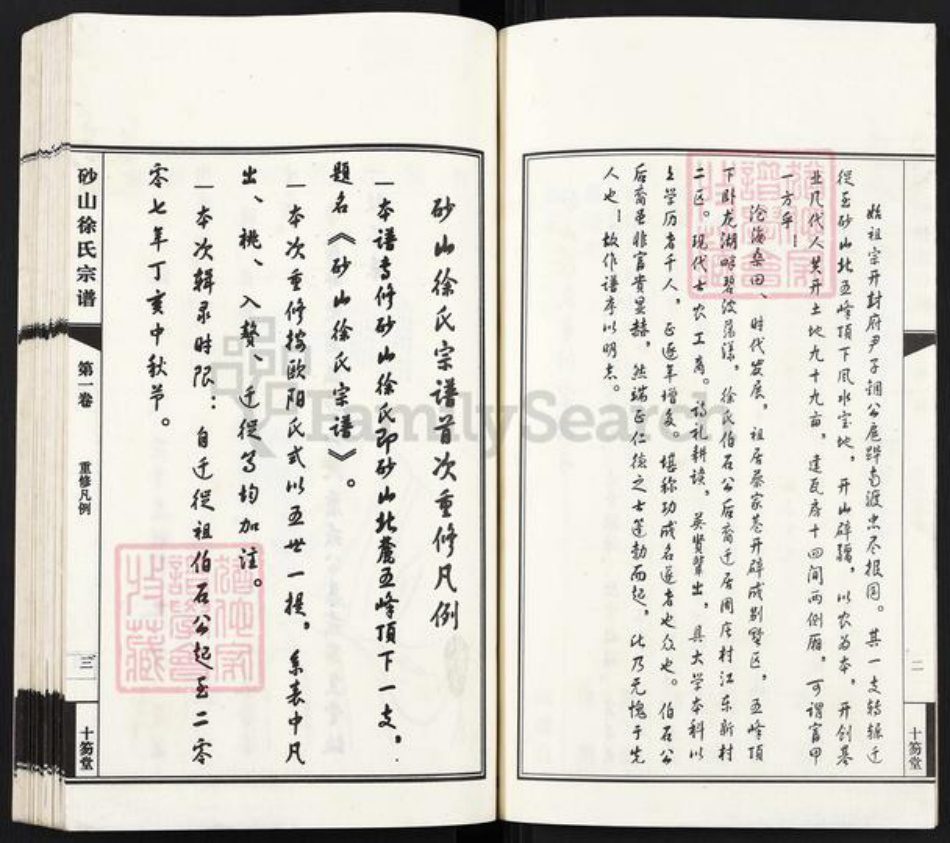 始祖宗开封府尹子锢公扈跸南渡忠尽报国。其一支转辗迁
徙至砂山北五峰顶下风水宝地，开山辟疆，以农为本，开创基
业几代人共开土地九十九亩，建瓦房十四间两侧厢，可谓富甲
一方乎！
沧海桑田、时代发展，祖居蔡家巷开辟成别墅区，五峰顶
下卧龙湖畔碧波荡漾，徐氏伯石公后裔迁居周庄村江东新村
二区。现代士农工商。诗礼耕读，英贤辈出，具大学本科以
上学历者千人，正逐年增多。堪称功成名遂者也众也。伯石公
后裔虽非富贵显赫，然端正仁德之士蓬勃而起，此乃无愧于先
人也！故作谱序以明志。
二
十笏堂
砂山徐氏宗谱首次重修凡例
一本谱专修砂山徐氏即砂山北麓五峰顶下一支，
题名《砂山徐氏宗谱》。
一本次重修按欧阳氏式以五世一提，系表中凡
出、祧、入赘、迁徙等均加注。
一本次辑录时限：自迁徙祖伯石公起至二零
零七年丁亥中秋节。
砂山徐氏宗谱
第一卷
重修凡例
三
十笏堂
谱学会
收藏
FamilySearch